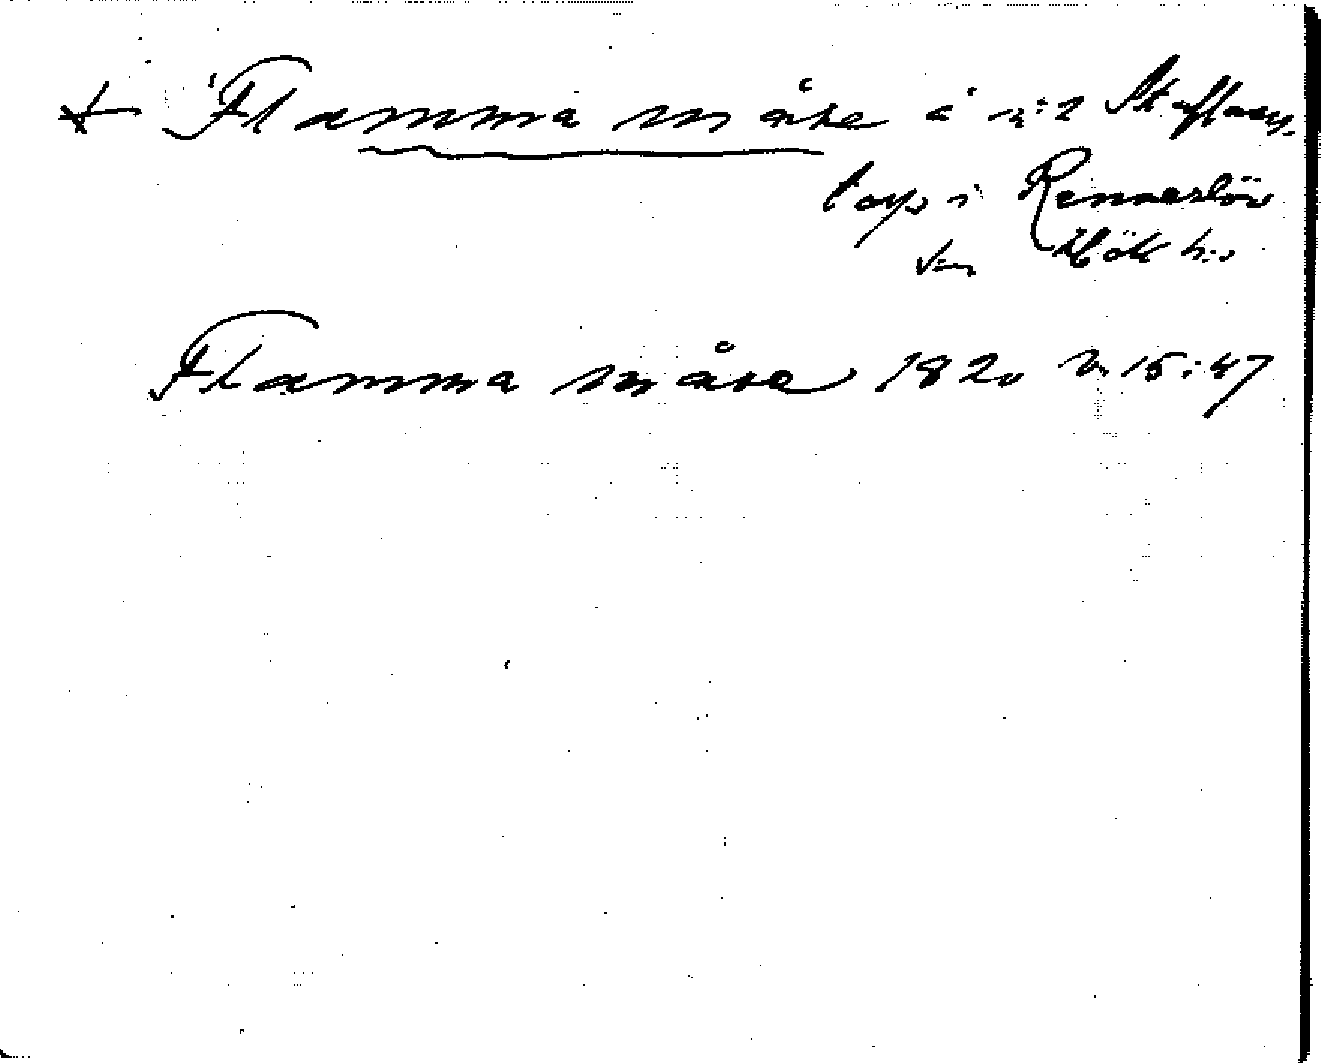 + Flamma måse å n:2 Staffans-
torp i Rennerslöv
sn Hök h:d
Flamma måse 1820 n 15:47